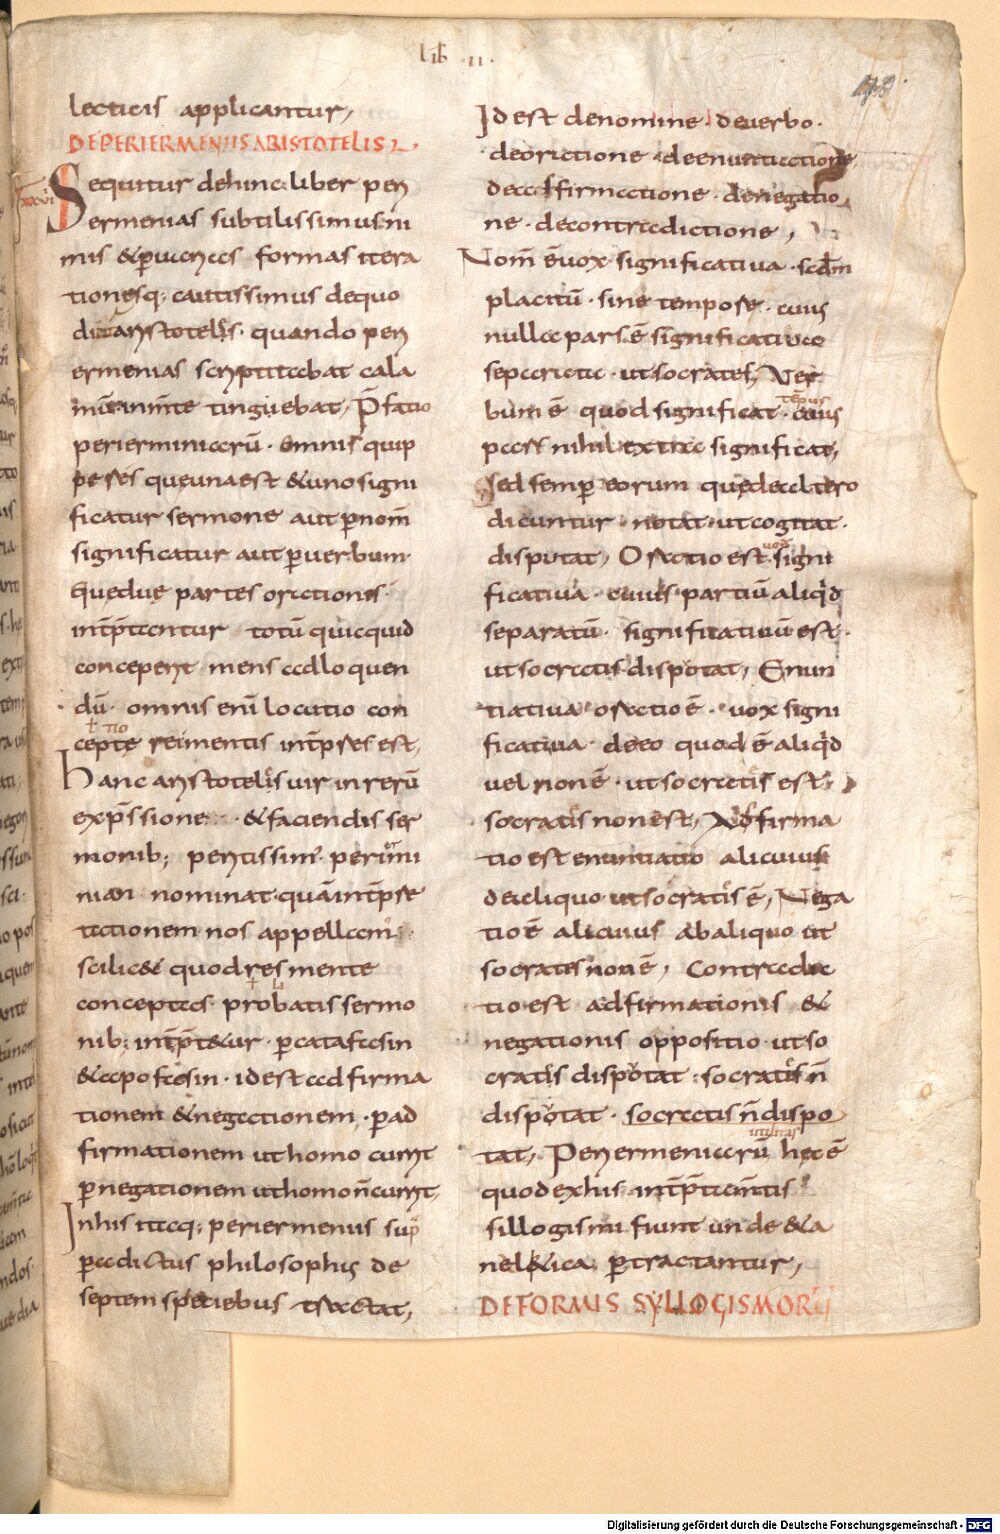 lib · ii ·
178
lecticis applicantur,
DEPERIERMENIISARISTOTELIS
xxvii
Sequitur dehinc liber peri
ermenias subtilissimus ni
mis &p̄uarias formas itera
tionesq; cautissimus dequo
dic̄ aristotelis · quando peri
ermenias scriptitabat cala
mū inm̄te tinguebat, P̄fatio
perierminiarū · Omnis quip
pe res queunaest &unosigni
ficatur sermone aut p̄nom̄
significatur aut p̄uerbum
Quędue partes orationis
int̄p̄tantur totū quicquid
conceperit mens adloquen
dū · omnis enī locutio con
ł tio
cepte reimentis int̄p̄res est,
Hanc aristotelis vir inrerū
exp̄ssione &faciendis ser
monib; peritissim' perimi
nian nominat quā int̄p̄re
tationem nos appellam'
scilic& quodres mente
conceptas probatis sermo
nib; int̄p̄t&ur · p̄catafasin
&apofasin · idest adfirma
tionem &negationem · p̄ad
firmationem uthomo currit
p̄negationem uthomon̄currit,
Inhis itaq; periermenus sup̄
p̄adictus philosophis de
septem speciebus tractat,
Idest denomine · deuerbo ·
deoratione · deenuntiatione
deadfirmatione · denegatio
ne · decontradictione,
Nom̄ ēuox significatiua · scdm̄
placitū · sine tempore · cuius
nulla pars ē significatiua
separata · utsocrates, Ver
tēpus
bumē quodsignificat · cuius
pars nihil extra significat,
sedsemp̄ eorum quędealtero
dicuntur · notat utcogitat ·
disputat, Oratio est signi
uox
ficatiua · cuius partiū aliq̇d
separatū · significatiuū est ·
utsocratis disputat, Enun
tiatiua oratio ē · uox signi
ficatiua · deeo quod ē aliq̇d
uel nonē · utsocratis est
socratis nonest, Adfirma
tioest enuntiatio alicuius
dealiquo utsocratis ē, Nega
tioē alicuius abaliquo ut
socrates nonē, Contradic
tioest adfirmationis &
negationis oppositio · utso
cratis disputat : socratis n̄
disputat · socratis n̄ dispo
utilitas
tat, Periermeniarū hęc ē
quodexhis int̄p̄tam̄tis
sillogismi fiunt unde &a
nel&ica p̄tractantur,
DEFORMIS SYLLOGISMORŪ
Digitalisierung gefördert durch die Deutsche Forschungsgemeinschaft - DFG